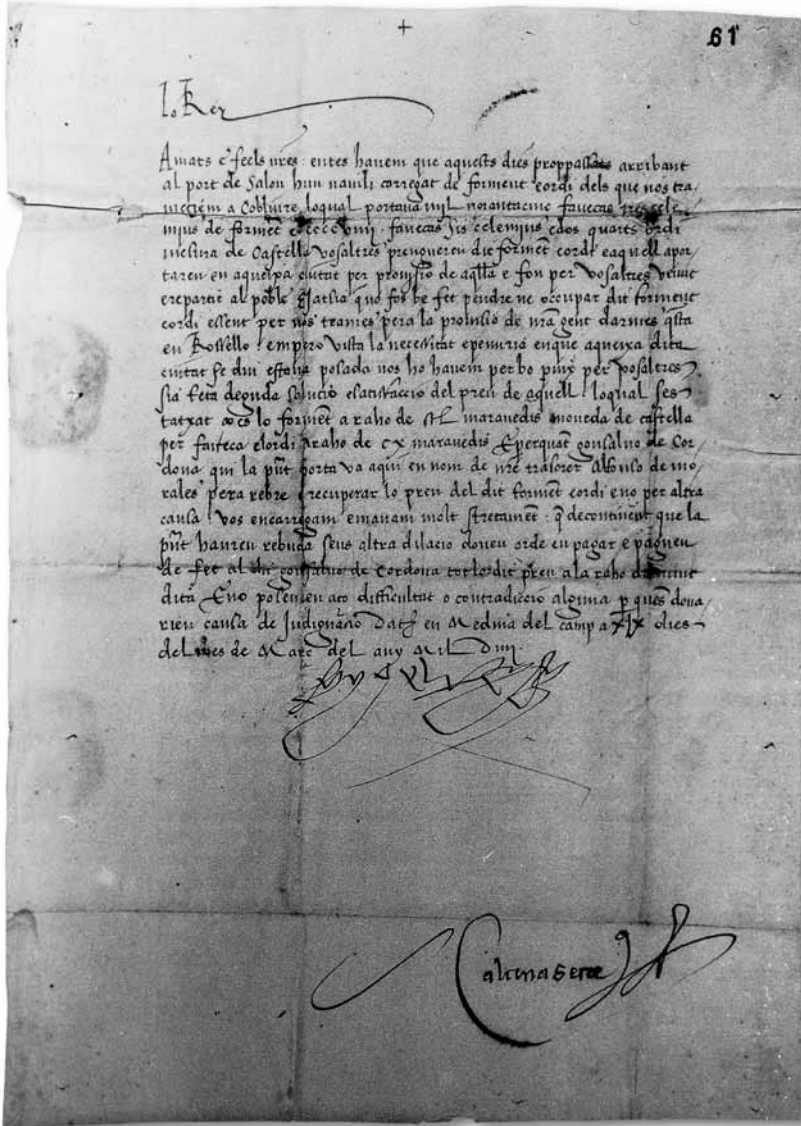 61
Lo Rey
Amats e feels nres: entes havem que aquests dies proppassats arribant
al port de Salou hun navili carregat de forment eordi dels que nos tra,
metiem a Cobliure loqual portava mil norantacinc fanecas tres cele,
mins de formēt e fanecas sis celemins edos quarts ordi
mesura de Castella vosaltres prengueren dit formēt eordi eaquell apor,
taren en aqueixa ciutat per provisio de aq̄lla e fon per vosaltres venut
erepartit al poble E jatsia q̄ no fos be fet pendre ne occupar dit forment
eordi essent per nos trames pera la provisio de nr̄a gent darmes q̄ sta
en Rossello: empero vista la necessitat epenuria enque aqueixa dita
ciutat se diu estava posada nos ho havem per bo puix per vosaltres
sia feta deguda solucio esatisfaccio del preu de aquell: loqual ses
tatxat es lo formēt a raho de maravedis moneda de castella
per faneca elordi araho de cx maravedis Eperquāt gonsalvo de Cor,
dova qui la pn̄t porta va aqui en nom de nr̄e tresorer Alfonso de mo,
rales pera rebre erecuperar lo preu del dit formēt eordi eno per altra
causa: vos encarregam emanam molt stretament: q̄ decontinent que la
pn̄t haureu rebuda sens altra dilacio doneu orde en pagar e pagueu
de fet al dit gonsalvo de Cordova tot lo dit preu a la raho
dita Eno poseu en aço difficultat o contradiccio alguna p̱ ques dona,
rien causa de Indignacio Dat̄ en Medina del camp a xix dies
del mes de Març del any Mil Diiii.